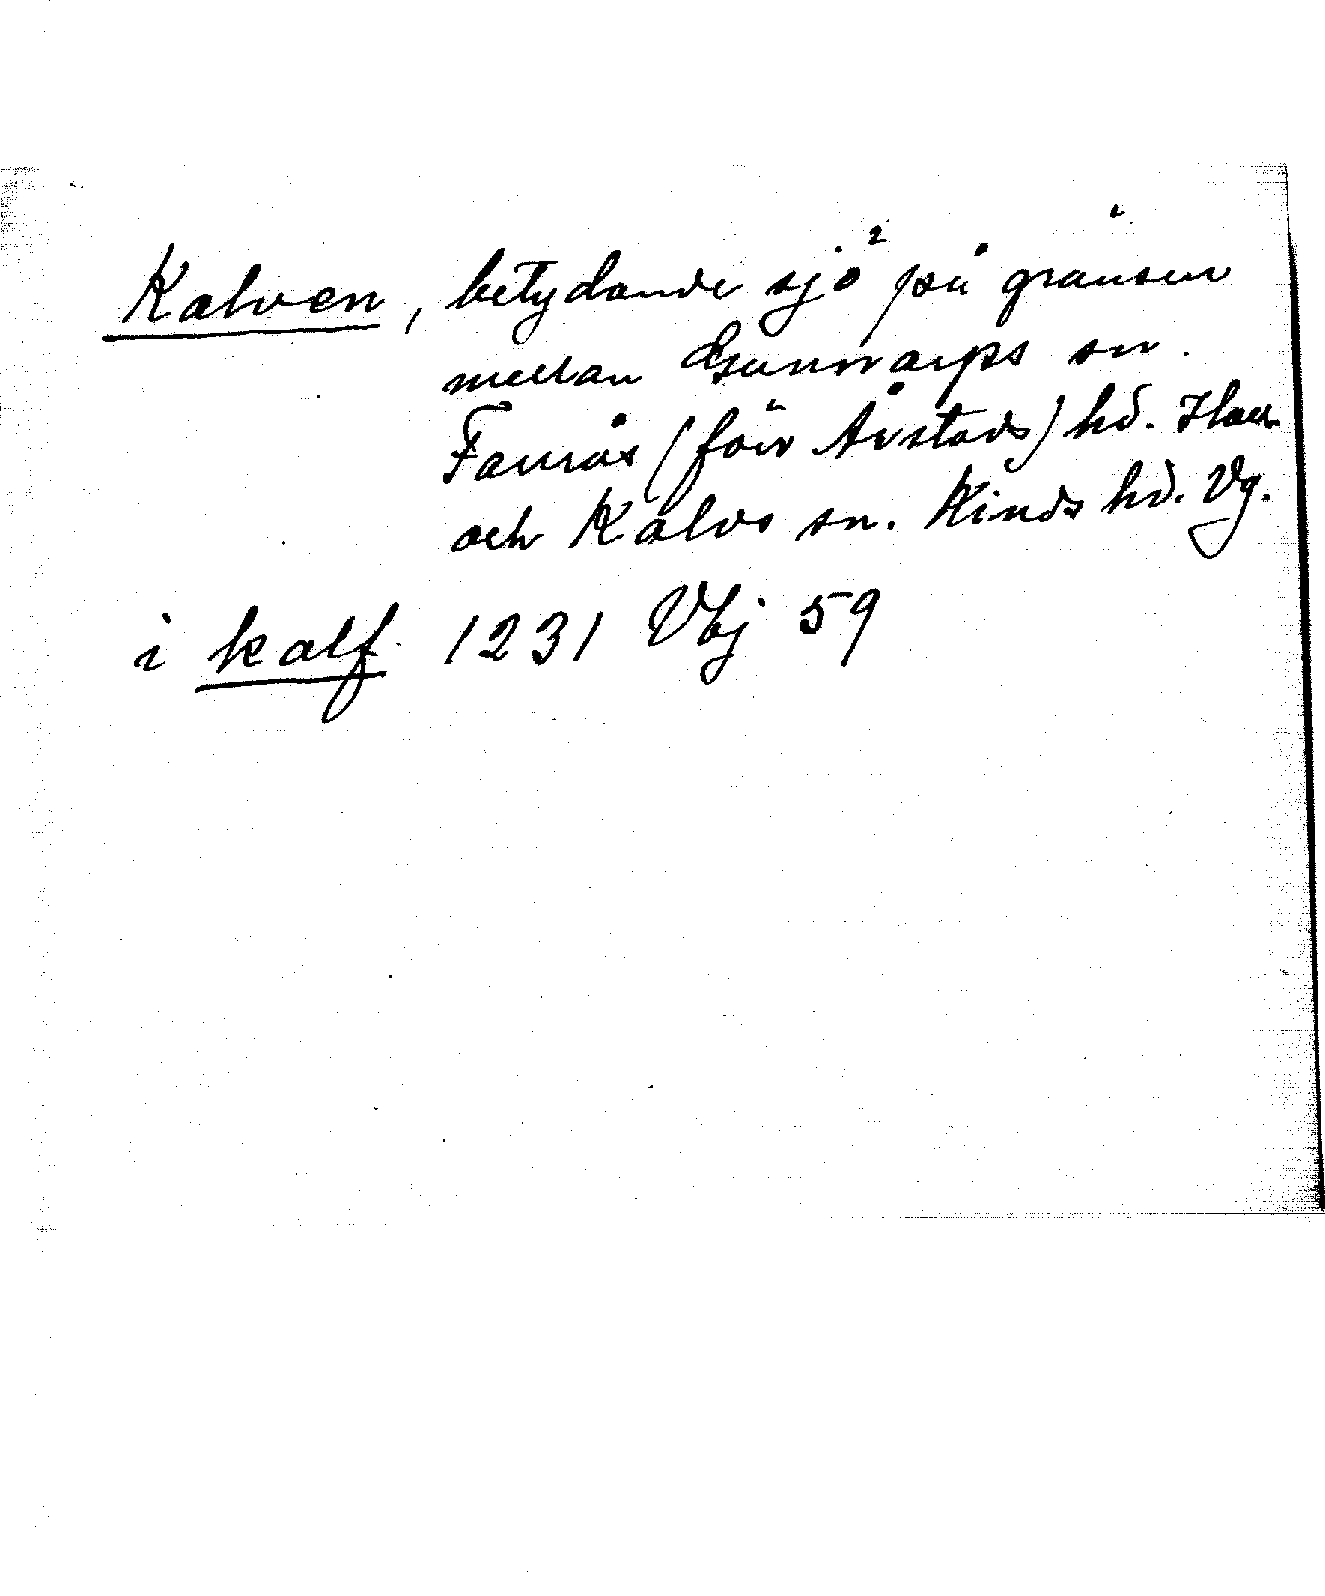 Kalven, betydande sjö på gränsen
mellan Gunnarps sn.
Faurås (förr Årstads) hd. Hall.
och Kalvs sn. Kinds hd. Vg.
i kalf 1231 Vbj 59